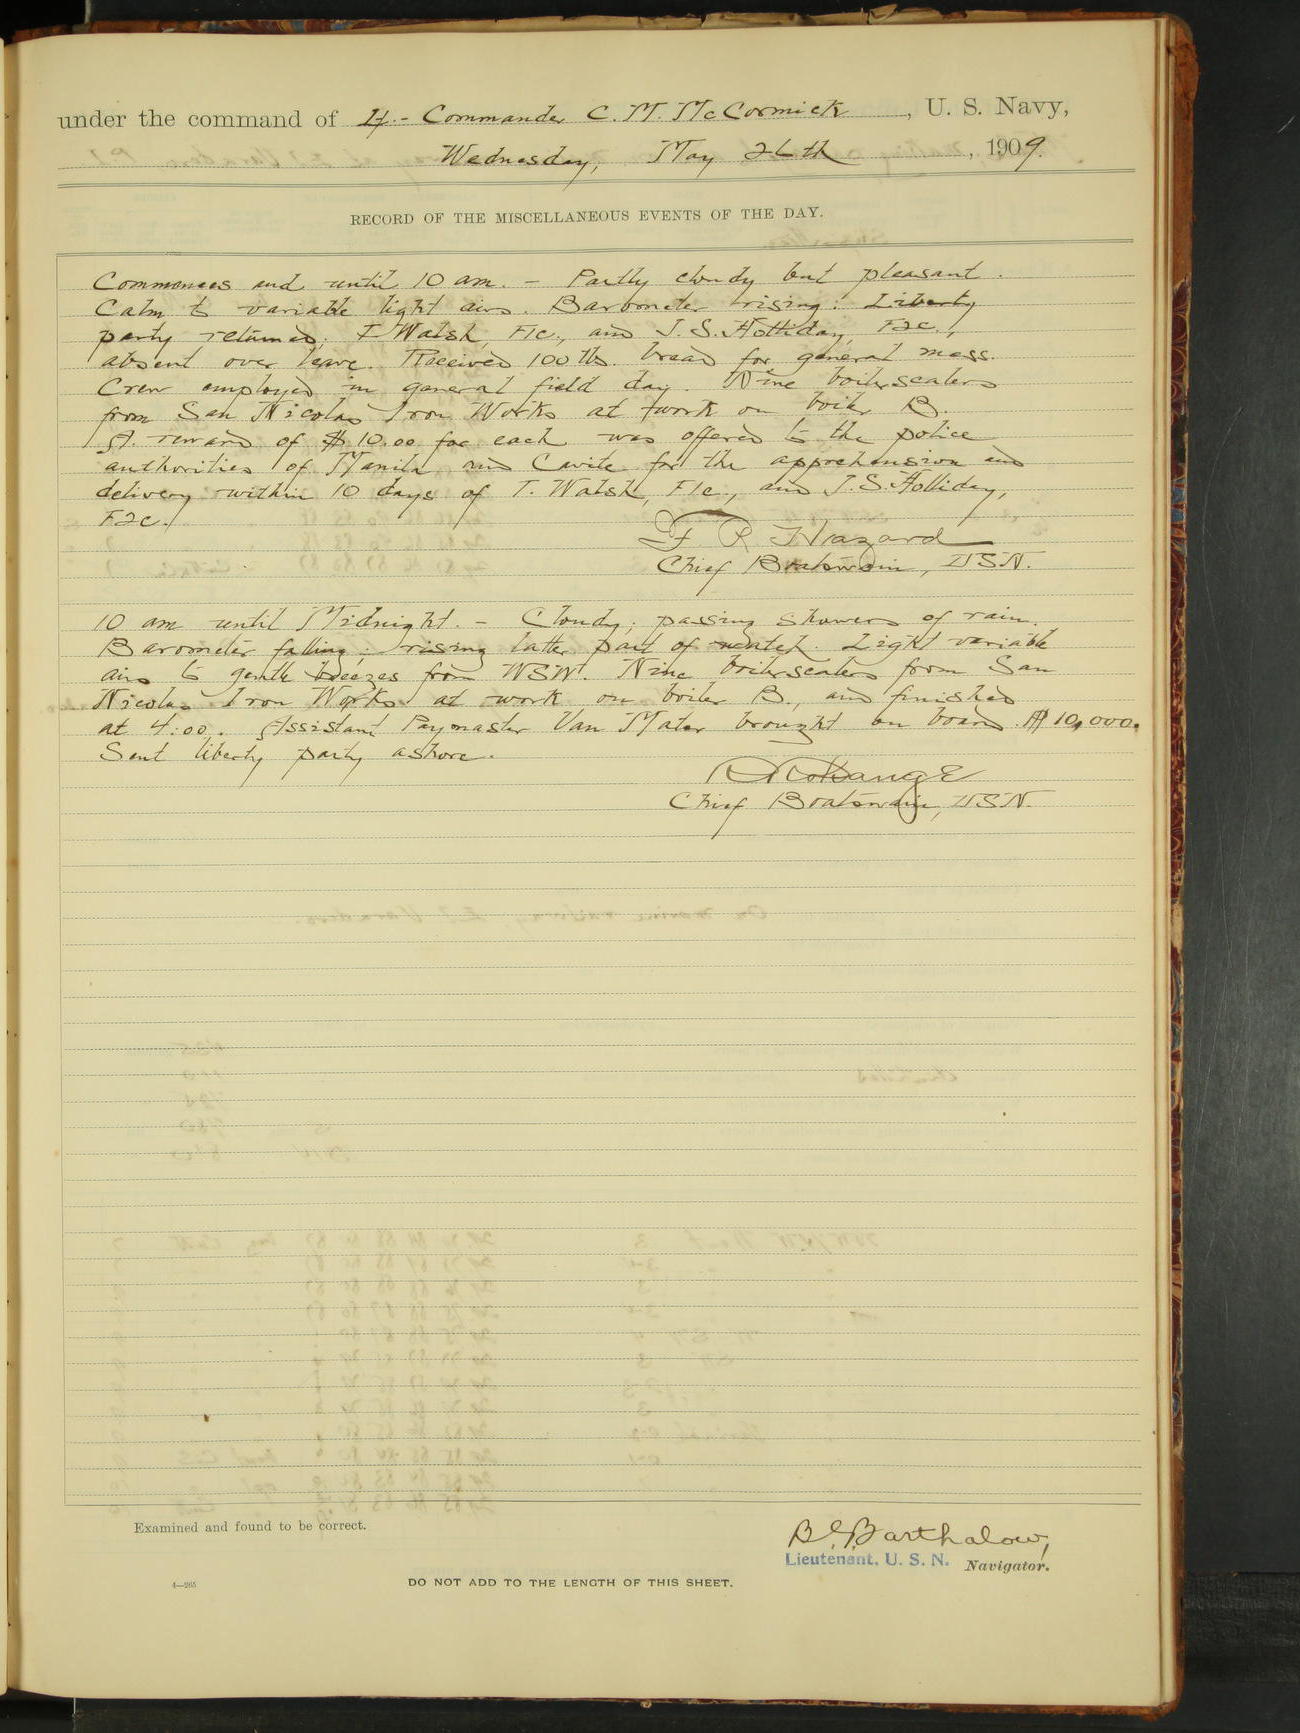 under the command of Lt.- Commander C. M. McCormick, U. S. Navy,
Wednesday, May 26th, 1909.
RECORD OF THE MISCELLANEOUS EVENTS OF THE DAY.
Commences and until 10 am. - Partly cloudy but pleasant.
Calm to variable light airs. Barometer rising. Liberty
party returned; T. Walsh, F1c., and J. S. Holliday, F2c.,
absent over leave. Received 100 lbs. bread for general mess.
Crew employed in general field day. Nine boilerscalers
from San Nicolas Iron Works at work on boiler B.
A reward of $10.00 for each was offered to the police
authorities of Manila and Cavite for the apprehension and
delivery within 10 days of T. Walsh, F1c., and J. S. Holliday,
F2c.
F R Hazard
Chief Boatswain, USN.
10 am until Midnight. - Cloudy; passing showers of rain.
Barometer falling; rising latter part of watch. Light variable
airs to gentle breezes from WSW. Nine boilerscalers from San
Nicolas Iron Works at work on boiler B., and finished
at 4:00. Assistant Paymaster Van Mater brought on board $10,000.
Sent liberty party ashore.
Chief Boatswain, USN.
Examined and found to be correct.
B. Barthalow,
Lieutenant, U. S. N. Navigator.
4—265
DO NOT ADD TO THE LENGTH OF THIS SHEET.